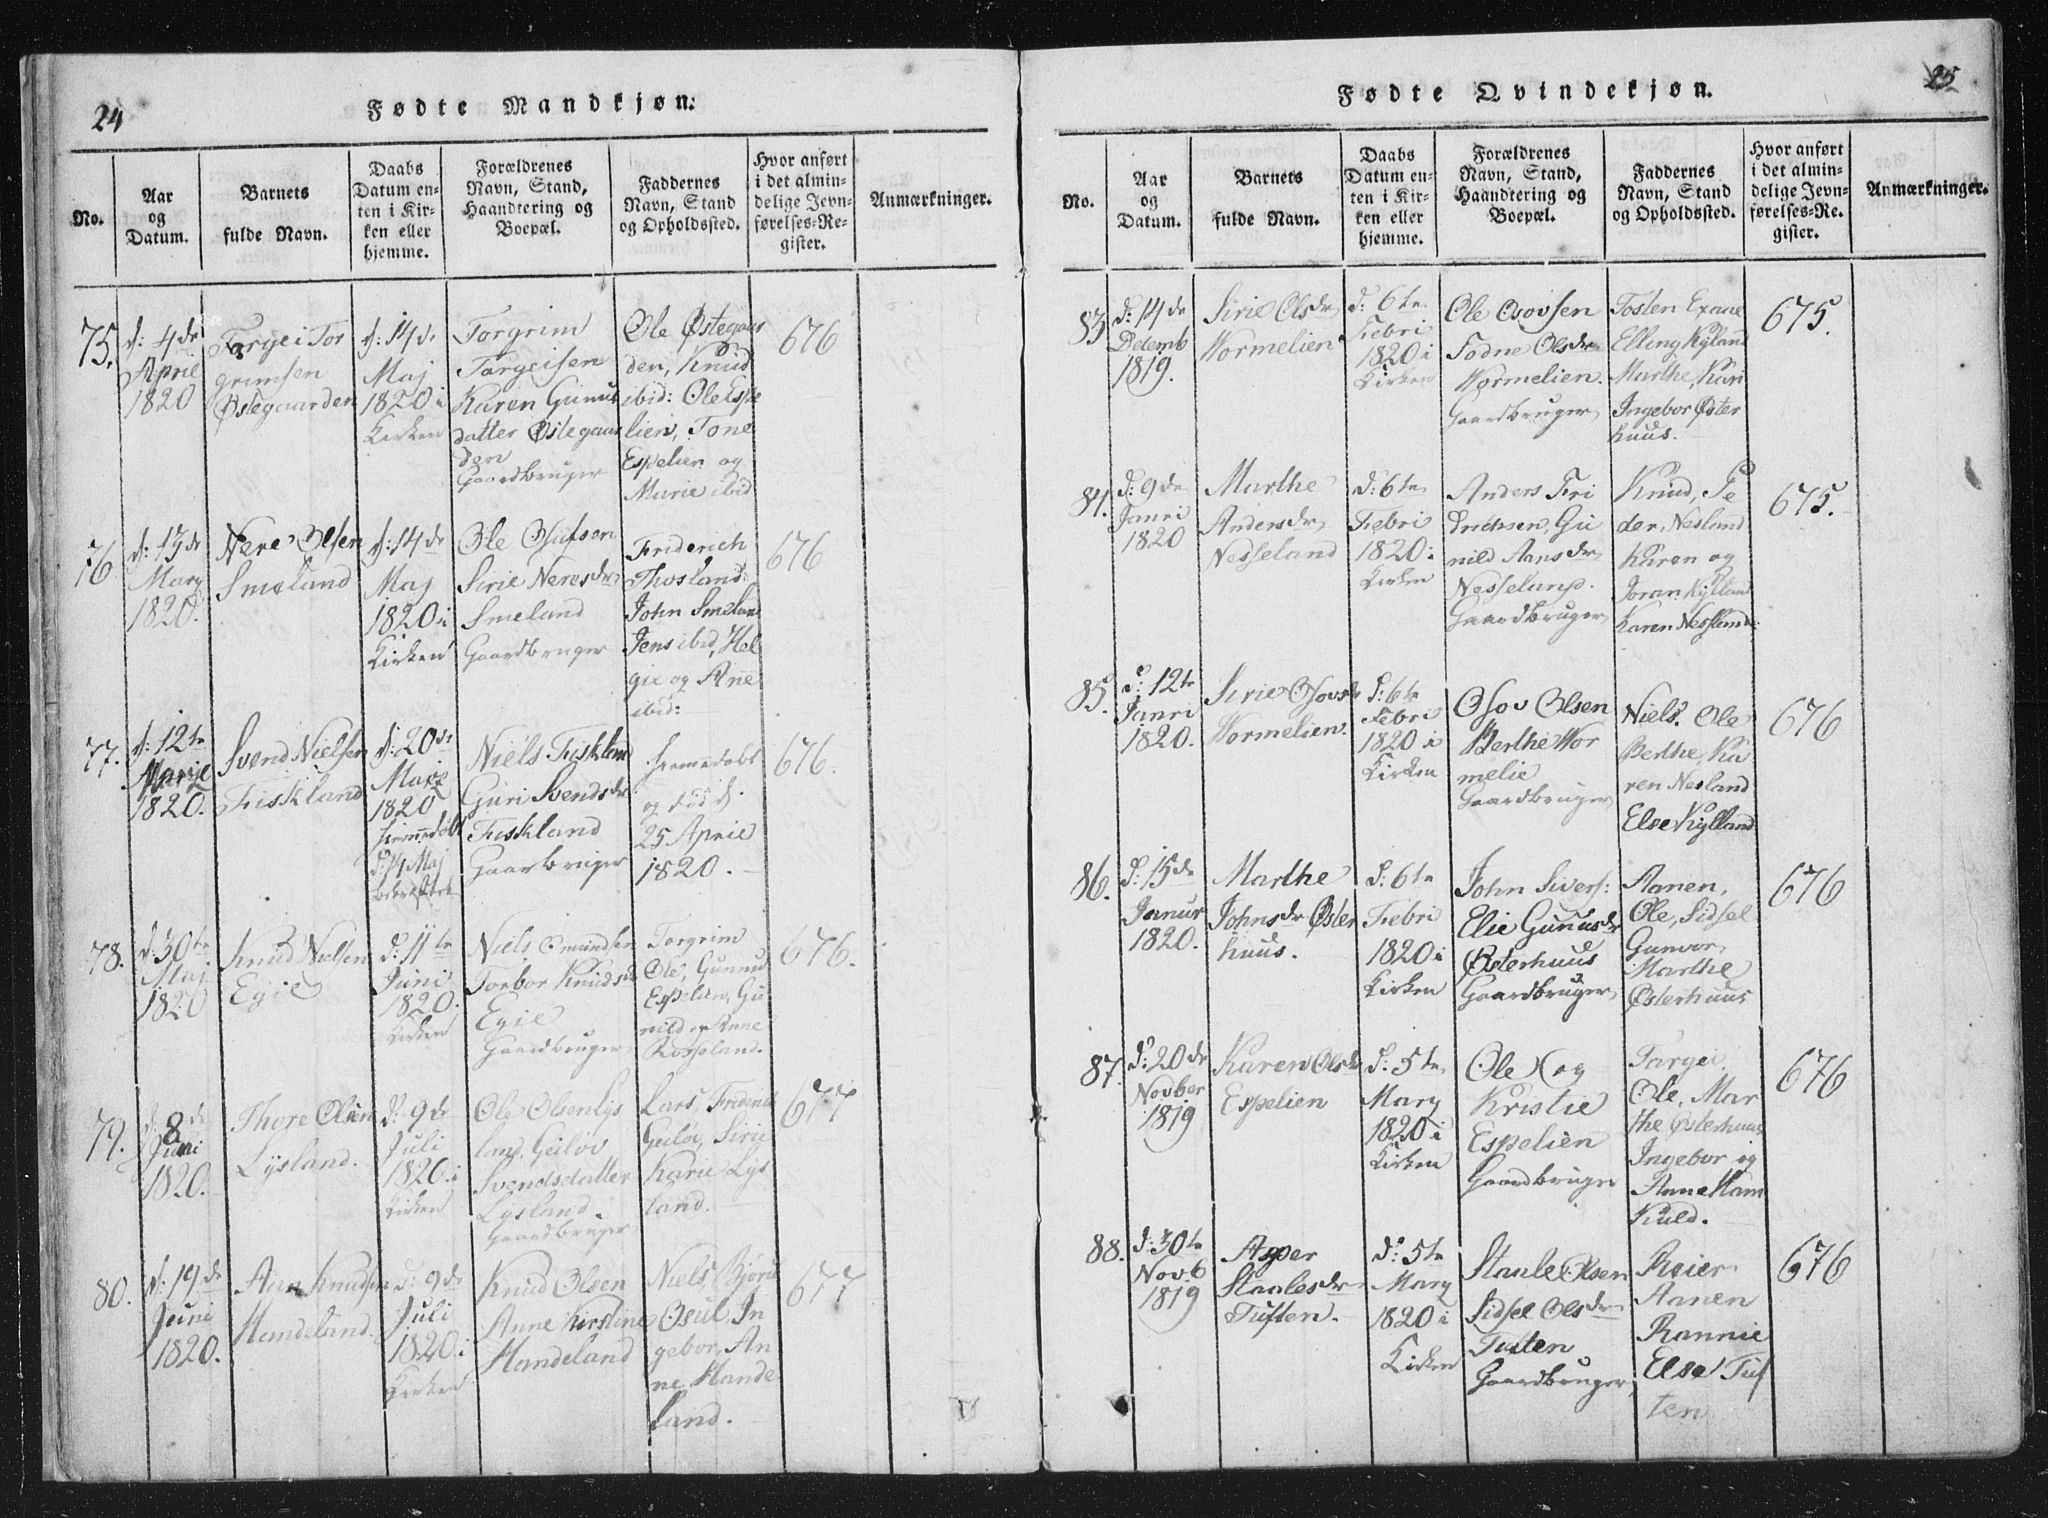 24
Fødte Mandkjøn.
No.
Aar
og
Datum.
Barnets
fulde Navn.
Daabs
Datum en-
ten i Kir-
ken eller
hjemme.
Forældrenes
Navn, Stand,
Haandtering og
Boepæl.
Faddernes
Navn, Stand
og Opholdssted.
Hvor anført
i det almin-
delige Jevn-
førelses-Re-
gister.
Anmærkninger.
75.
d: 4de
April
1820
Torgei Tor
grimsen
Østegaarden
d: 14de
Maj
1820 i
Kirken
Torgrim
Torgeisen
Karen Gunus
datter Østegaar
den
Gaardbruger
Ole Østegaar
den, Knud
ibid: Ole Espe
lien, Tone
Espelien og
Marie ibid
676
76
d: 13de
Marz
1820.
Nere Olsen
Smeland
d: 14de
Maj
1820 i
Kirken
Ole Osufsen
Sirie Neresdr
Smeland
Gaardbruger
Friderich
Thosland:
John Smelan
Jens ibid, Hel
gie og Anne
ibid:
676
77.
d: 12te
1820.
Svend Nielsen
Fiskland
d: 20de
1820
hjemmedøbt
d: 14 Maj
bekræftet
Niels Fiskland
Guri Svendsdr
Fiskland
Gaarbruger
hjemmedøbt
og død d:
25 April
1820.
676.
78.
d: 30te
Maj
1820
Knud Nielsen
Egie
d: 11te
Juni
1820.
Kirken
Niels Omundsen
Torbor Knudsdr
Egie
Gaardbruger
Torgrim
Ole, Gunnu
Espelien, Gu
nild og Anne
Rosseland.
676.
79.
d: 8de
Juni
1820.
Thore Olsen
Lysland.
d: 9de
Juli
1820. i
Kirken
Ole Olsen Lys
land, Geiløv
Svendsdatter
Lysland.
Gaardbruger
Lars, Friderich
Geiløv, Sirie
Karie Lys
land.
677
80.
d: 19de
Juni
1820.
Knudsen
Handeland.
d: 9de
Juli
1820. i
Kirken
Knud Olsen
Anne Kirstine
Handeland
Niels, Bjøru
Osul, In
gebor, An
ne Hande
land.
677
25
Fødte Qvindekjøn.
No.
Aar
og
Datum.
Barnets
fulde Navn.
Daabs
Datum en-
ten i Kir-
ken eller
hjemme.
Forældrenes
Navn, Stand,
Haandtering og
Boepæl.
Faddernes
Navn, Stand
og Opholdssted.
Hvor anført
i det almin-
delige Jevn-
førelses-Re-
gister.
Anmærkninger.
83
d: 14de
Decemb
1819.
Sirie Olsdr
Wormelien
d: 6te
Febri
1820 i
Kirken
Ole Osovsen
Todne Olsdr
Wormelien.
Gaardbruger
Tosten Exane
Elling Kyland
Marthe, Kari
Ingebor Øster
huus.
675.
84.
d: 9de
Janri
1820
Marthe
Andersdr
Nesseland
d: 6te
Febri
1820 i
Kirken
Anders Fri
drichsen, Gu
nild Aansdr
Nesseland.
Gaardbruger
Knud, Pe
der, Nesland
Karen og
Joran Kylland
Karen Nesland
675.
85.
d: 12te
Janri
1820.
Sirie Osovsdr
Wormelien.
d: 6te
Febri
1820 i
Kirken
Osov Olsen
Berthe Wor
melie
Gaardbruger
Niels. Ole
Berthe, Ka
ren Nesland
Else Kylland
676
86.
d: 15de
Janur
1820.
Marthe
Johnsdr Øster
huus.
d: 6te
Febri
1820 i
Kirken
John Sivers:
Elie Gunusdr
Østerhuus
Gaardbruger
Aanen,
Ole, Sidsel
Gunvor,
Marthe
Østerhuus
676
87.
d: 20de
Novber
1819
Karen Olsdr
Espelien
d: 5te
Marz
1820 i
Kirken
Ole og
Kristie
Espelien
Gaardbruger
Targei
Ole, Mar
the Østerhuus
Ingebor og
Anne Ham
kuld.
676
88.
d: 30te
Novb
1819
Asper
Staalesdr
Tuften.
d: 5te
Marz
1820 i
Kirken
Staale Olsen
Sidsel Olsdr
Tuften
Gaardbruger,
Reier
Aanen
Rannie
Else Tuf
ten
676